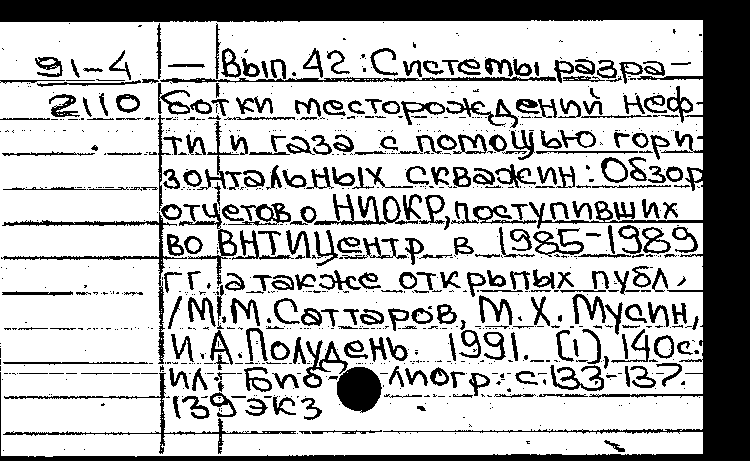 91-4 — Вып. 42 : Системы разра-
2110 ботки месторождений неф-
ти и газа с помощью гори-
зонтальных скважин : Обзор
отчетов о НИОКР, поступивших
во ВНТИЦентр в 1985-1989
гг., а также открытых публ.
/ М.М. Саттаров, М.Х. Мусин,
И.А. Полудень. 1991. [1], 140 с.:
ил. Библиогр.: с. 133-137.
139 экз